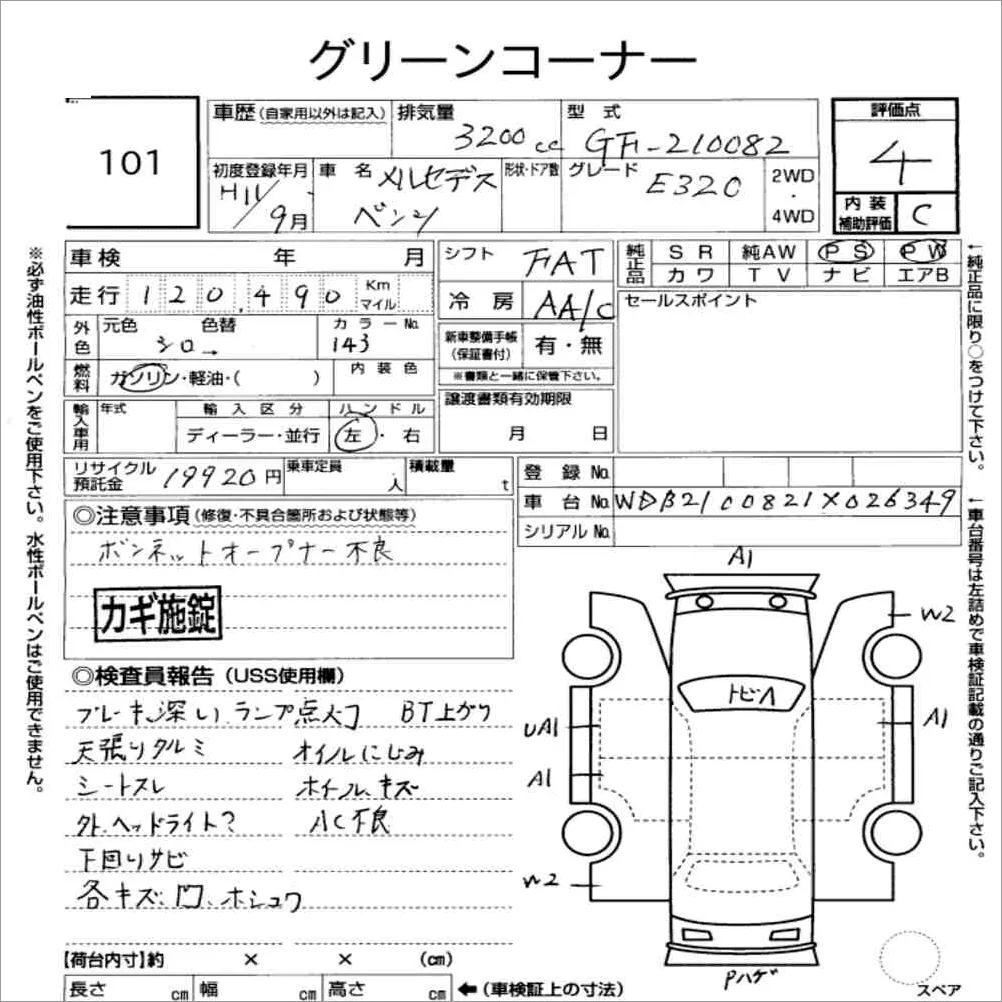 グリーンコーナー
101
車歴(自家用以外は記入)
排気量 3200cc
型式 GFI-210082
評価点
4
内装補助評価 C
初度登録年月 H11/9月
車名 メルセデスベンツ
形状・ドア数
グレード E320
2WD・4WD
車検 年 月
走行 120,490 Km マイル
シフト FAT
冷房 AA/C
純正品 SR 純AW PS PW
カワ TV ナビ エアB
セールスポイント
外色 元色 色替 シロ→
カラーNo. 143
燃料 ガソリン・軽油・( )
内装色
新車整備手帳(保証書付) 有・無
※書類と一緒に保管下さい。
輸入車用 年式 輸入区分 ハンドル
ディーラー・並行 左・右
譲渡書類有効期限
月 日
リサイクル預託金 19920円
乗車定員 人
積載量 t
登録No.
車台No. WDB2100821X026349
シリアルNo.
※必ず油性ボールペンをご使用下さい。水性ボールペンはご使用できません。
←純正品に限り○をつけて下さい。
←車台番号は左詰めで車検証記載の通りご記入下さい。
◎注意事項(修復・不具合箇所および状態等)
ボンネットオープナー不良
カギ施錠
◎検査員報告(USS使用欄)
ブレーキ深い、ランプ点灯 BT上がり
天張りタルミ オイルにじみ
シートスレ ホイールキズ
外、ヘッドライト? AC不良
下回りサビ
各キズ、凹、ホシュウ
A1
W2
トビA
UA1
A1
A1
W2
Pハゲ
スペア
【荷台内寸】約 × × (cm)
長さ cm 幅 cm 高さ cm ←(車検証上の寸法)